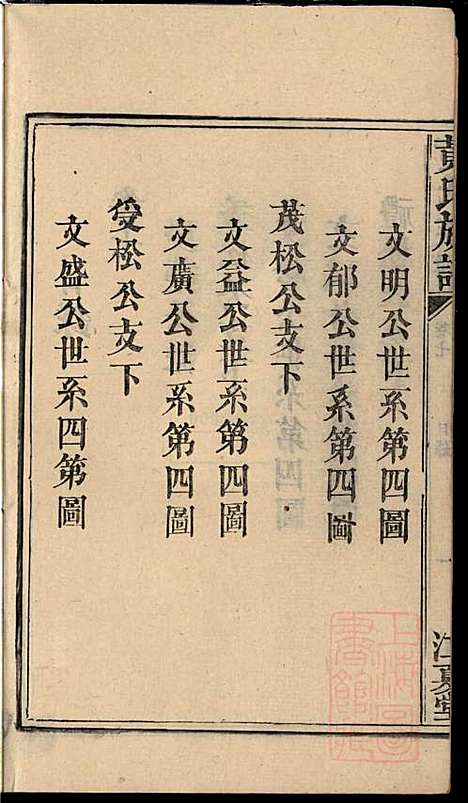 黃氏族譜
卷七
目錄
一
江夏堂
文明公世系第四圖
文郁公世系第四圖
茂松公支下
文益公世系第四圖
文廣公世系第四圖
受松公支下
文盛公世系四第圖
上海圖書館藏